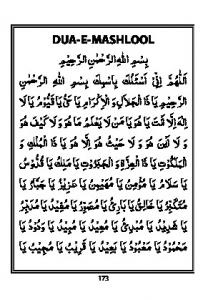 DUA-E-MASHLOOL
بِسْمِ اللهِ الرَّحْمٰنِ الرَّحِيْمِ
اَللّٰهُمَّ اِنِّيْ اَسْئَلُكَ بِاسْمِكَ بِسْمِ اللهِ الرَّحْمٰنِ
الرَّحِيْمِ يَا ذَا الْجَلَالِ وَ الْاِكْرَامِ يَا حَيُّ يَا قَيُّوْمُ يَا لَا
اِلٰهَ اِلَّا اَنْتَ يَا هُوَ يَا مَنْ لَا يَعْلَمُ مَا هُوَ وَ لَا كَيْفَ هُوَ
وَ لَا اَيْنَ هُوَ وَ لَا حَيْثُ هُوَ اِلَّا هُوَ يَا ذَا الْمُلْكِ وَ
الْمَلَكُوْتِ يَا ذَا الْعِزَّةِ وَ الْجَبَرُوْتِ يَا مَلِكُ يَا قُدُّوْسُ
يَا سَلَامُ يَا مُؤْمِنُ يَا مُهَيْمِنُ يَا عَزِيْزُ يَا جَبَّارُ يَا
مُتَكَبِّرُ يَا خَالِقُ يَا بَارِئُ يَا مُصَوِّرُ يَا مُفِيْدُ يَا مُدَبِّرُ
يَا شَدِيْدُ يَا مُبْدِئُ يَا مُعِيْدُ يَا مُبِيْدُ يَا وَدُوْدُ يَا
مَحْمُوْدُ يَا مَعْبُوْدُ يَا بَعِيْدُ يَا قَرِيْبُ يَا مُجِيْبُ يَا
173